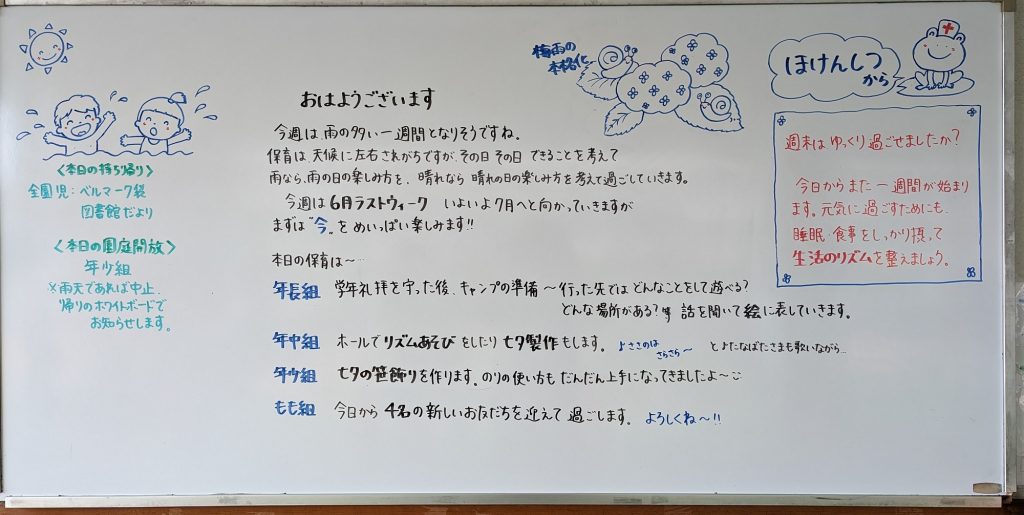 おはようございます
今週は雨の多い一週間となりそうですね。
保育は天候に左右されがちですが、その日その日 できることを考えて
雨なら、雨の日の楽しみ方を、晴れなら 晴れの日の楽しみ方を考えて過ごしていきます。
今週は 6月ラストウィーク いよいよ7月へと向かっていきますが
まずは“今„を めいっぱい楽しみます!!
本日の保育は〜
年長組 学年礼拝を守った後、キャンプの準備〜行った先では どんなことをして遊べる?
どんな場所がある? 等 話を聞いて 絵に表していきます。
年中組 ホールで リズムあそび をしたり 七夕製作もします。 ♪ささのは
さらさら〜 と♪たなばたさまも歌いながら…
年少組 七夕の笹飾りを作ります。のりの使い方も だんだん上手になってきましたよ〜
もも組 今日から 4名の新しいお友だちを迎えて 過ごします。 よろしくね〜!!
〈本日の持ち帰り〉
全園児:ベルマーク袋
図書館だより
〈本日の園庭開放〉
年少組
※雨天であれば中止.
帰りのホワイトボードで
お知らせします。
梅雨の
本格化
ほけんしつ
から
週末は ゆっくり過ごせましたか?
今日からまた 一週間が始まり
ます。元気に過ごすためにも、
睡眠・食事をしっかり摂って
生活のリズムを整えましょう。